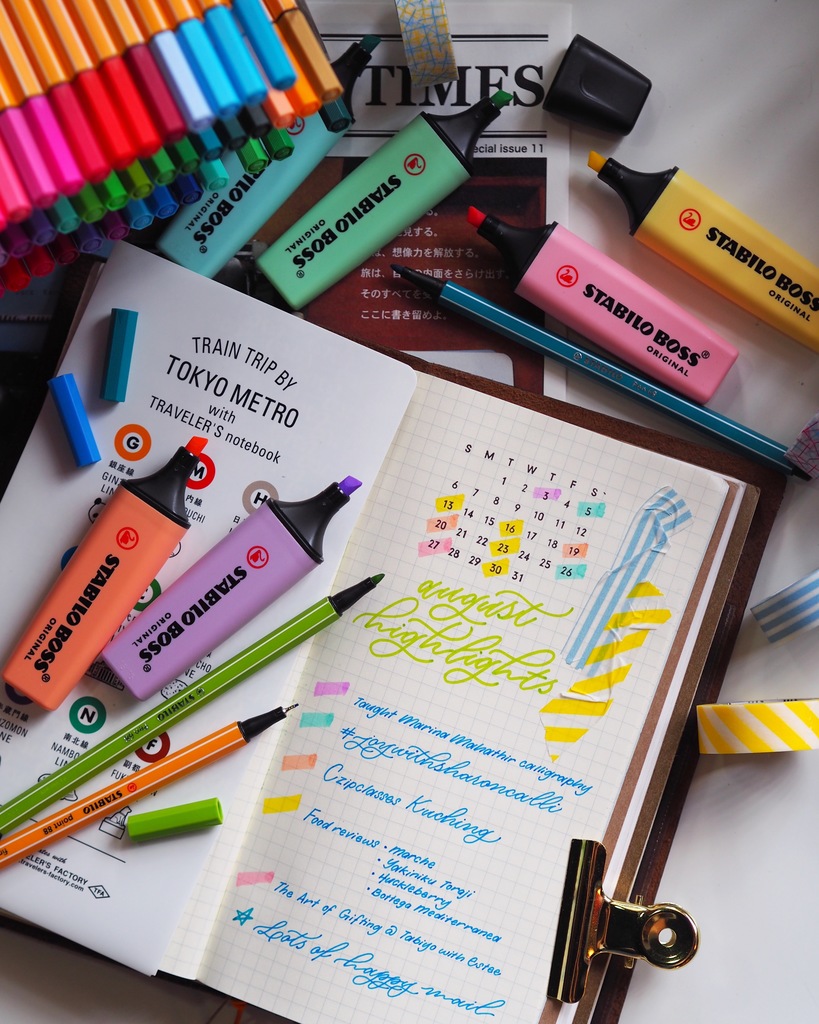 TIMES
special issue 11
STABILO BOSS
ORIGINAL
STABILO BOSS
ORIGINAL
STABILO BOSS
ORIGINAL
STABILO BOSS
ORIGINAL
は、想像力を解放する。
そのすべてを
ここに書き留めよ。
TRAIN TRIP BY
TOKYO METRO
with
TRAVELER'S notebook
G
銀座線
M
H
STABILO BOSS
ORIGINAL
STABILO BOSS
ORIGINAL
N
南北線
F
STABILO point 88
TRAVELER'S FACTORY
travelers-factory.com
S M T W T F S
1 2 3 4 5
6 7 8 9 10 11 12
13 14 15 16 17 18 19
20 21 22 23 24 25 26
27 28 29 30 31
august
highlights
Taught Marina Mahathir calligraphy
#joywithsharoncalli
Czipclasses Kuching
Food reviews • Marche
• Yakiniku Toraji
• Huckleberry
• Bottega Mediterranea
The Art of Gifting @ Tabiyo with Estee
Lots of happy mail